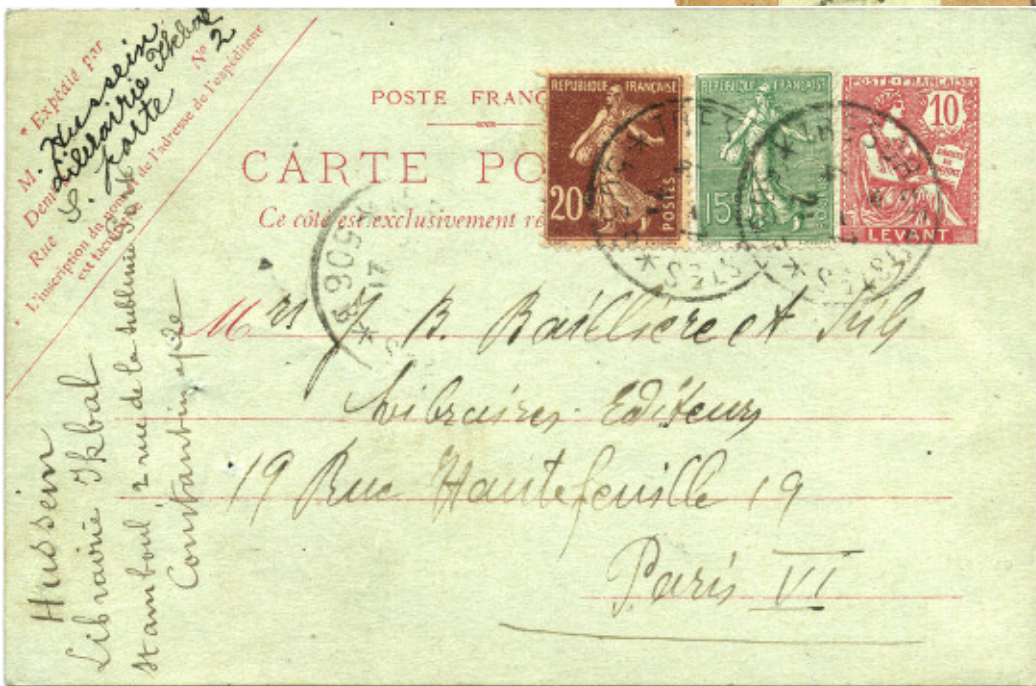 * Expédié par
M. Hussein
Librairie Ikbal
S. Porte
Rue Nº 2
* L'inscription du nom et de l'adresse de l'expéditeur
est facultative
POSTE FRANÇ
CARTE PO
Ce côté est exclusivement ré
REPUBLIQUE FRANÇAISE
20
POSTES
REPUBLIQUE FRANÇAISE
15
POSTE FRANÇAISE
10
LEVANT
Mrs J. B. Baillière et Fils
Libraires-Editeurs
19 Rue Hautefeuille 19
Paris VI
Hussein
Librairie Ikbal
Stamboul 2 rue de la Sublime Porte
Constantinople